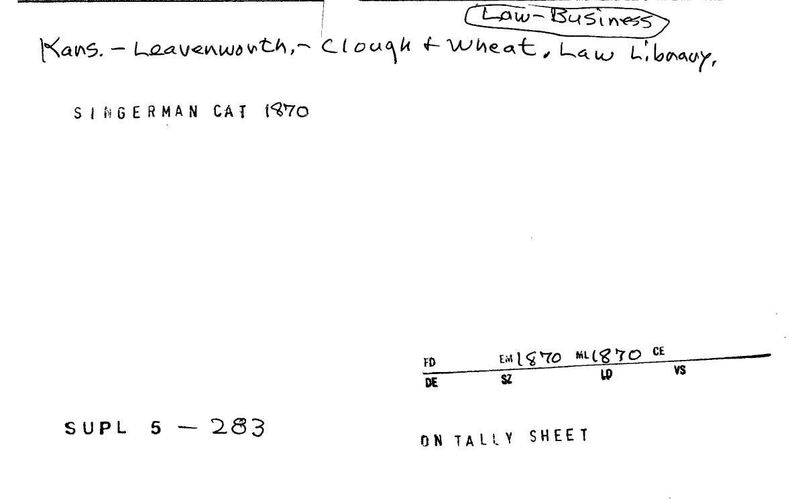 Law-Business
Kans. - Leavenworth, - Clough & Wheat, Law Library,
SINGERMAN CAT 1870
FD EM 1870 ML 1870 CE
DE SZ LD VS
SUPL 5 - 283
ON TALLY SHEET